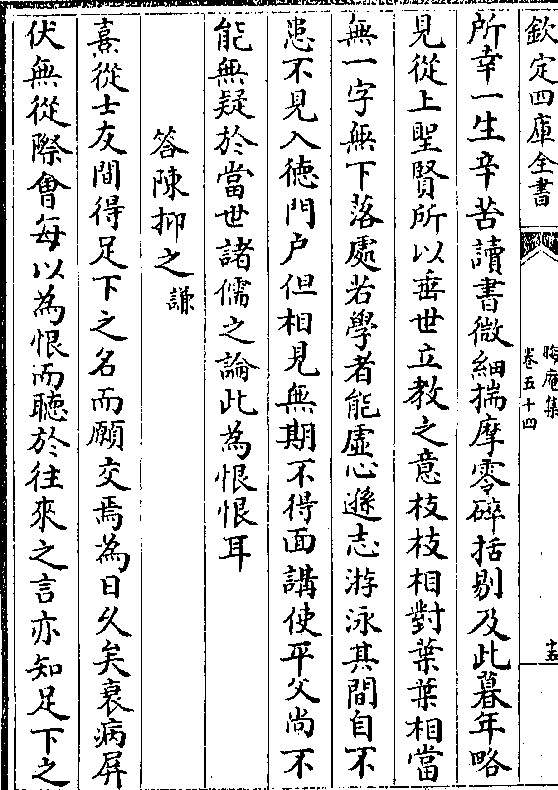 欽定四庫全書
晦庵集
卷五十四
十五
所幸一生辛苦讀書微細揣摩零碎括剔及此暮年略
見從上聖賢所以垂世立教之意枝枝相對葉葉相當
無一字無下落處若學者能虛心遜志游泳其間自不
患不見入德門户但相見無期不得面講使平父尚不
能無疑於當世諸儒之論此為恨恨耳
答陳抑之謙
熹從士友間得足下之名而願交焉為日久矣衰病屏
伏無從際會每以為恨而聽於往來之言亦知足下之